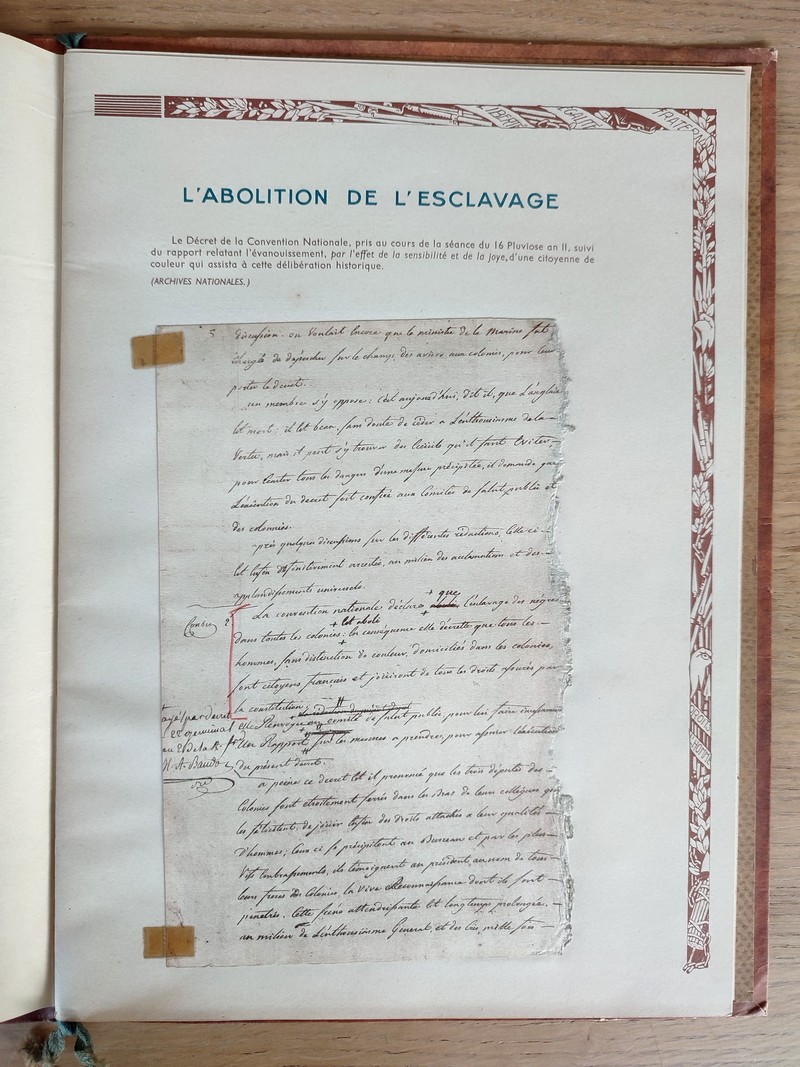 LIBERTÉ
ÉGALITÉ
FRATERN
L'ABOLITION DE L'ESCLAVAGE
Le Décret de la Convention Nationale, pris au cours de la séance du 16 Pluviose an II, suivi
du rapport relatant l'évanouissement, par l'effet de la sensibilité et de la joye, d'une citoyenne de
couleur qui assista à cette délibération historique.
(ARCHIVES NATIONALES.)
discussion. on Voulait Encore que le ministre de la Marine fut
chargé de dépêcher sur le champ des avisos aux colonies, pour leur
porter le decret.
un membre s'y oppose: c'est aujourd'hui, dit il, que L'anglais
Est mort; il Est beau, sans doute de céder a L'enthousiasme de la
Vertu, mais il peut s'y trouver des Excès qu'il faut Eviter,
pour Ecarter tous les dangers d'une mesure précipitée, il demande que
L'exécution du decret soit confiée aux Comités de Salut public et
des colonies.
après quelques discussions sur les différentes rédactions, Celle ci
Est Enfin définitivement arrêtée, au milieu des acclamations et des
applaudissements universels.
La convention nationale déclare que L'esclavage des nègres
dans toutes les colonies Est aboli; En conséquence Elle décrète que tous les
hommes, sans distinction de couleur, domiciliés dans les colonies,
sont citoyens français et jouiront de tous les droits assurés par
La constitution;
Elle Renvoye au comité de salut public, pour lui faire incessamment
Un Rapport sur les mesures a prendre, pour assurer L'exécution
du présent decret.
a peine ce decret Est il prononcé que les trois députés des
Colonies sont étroitement serrés dans les Bras de leurs collègues qui
les félicitent, de jouir Enfin des Droits attachés a leur qualité
D'hommes; Ceux ci se précipitent au Bureau et par les plus
Vifs Embrassements, ils témoignent au président, au nom de tous
leurs freres des Colonies, la vive Reconnaissance dont ils sont
pénétrés. Cette scène attendrissante Est longtemps prolongée,
au milieu de L'enthousiasme General et des cris, mille fois
22 germinal